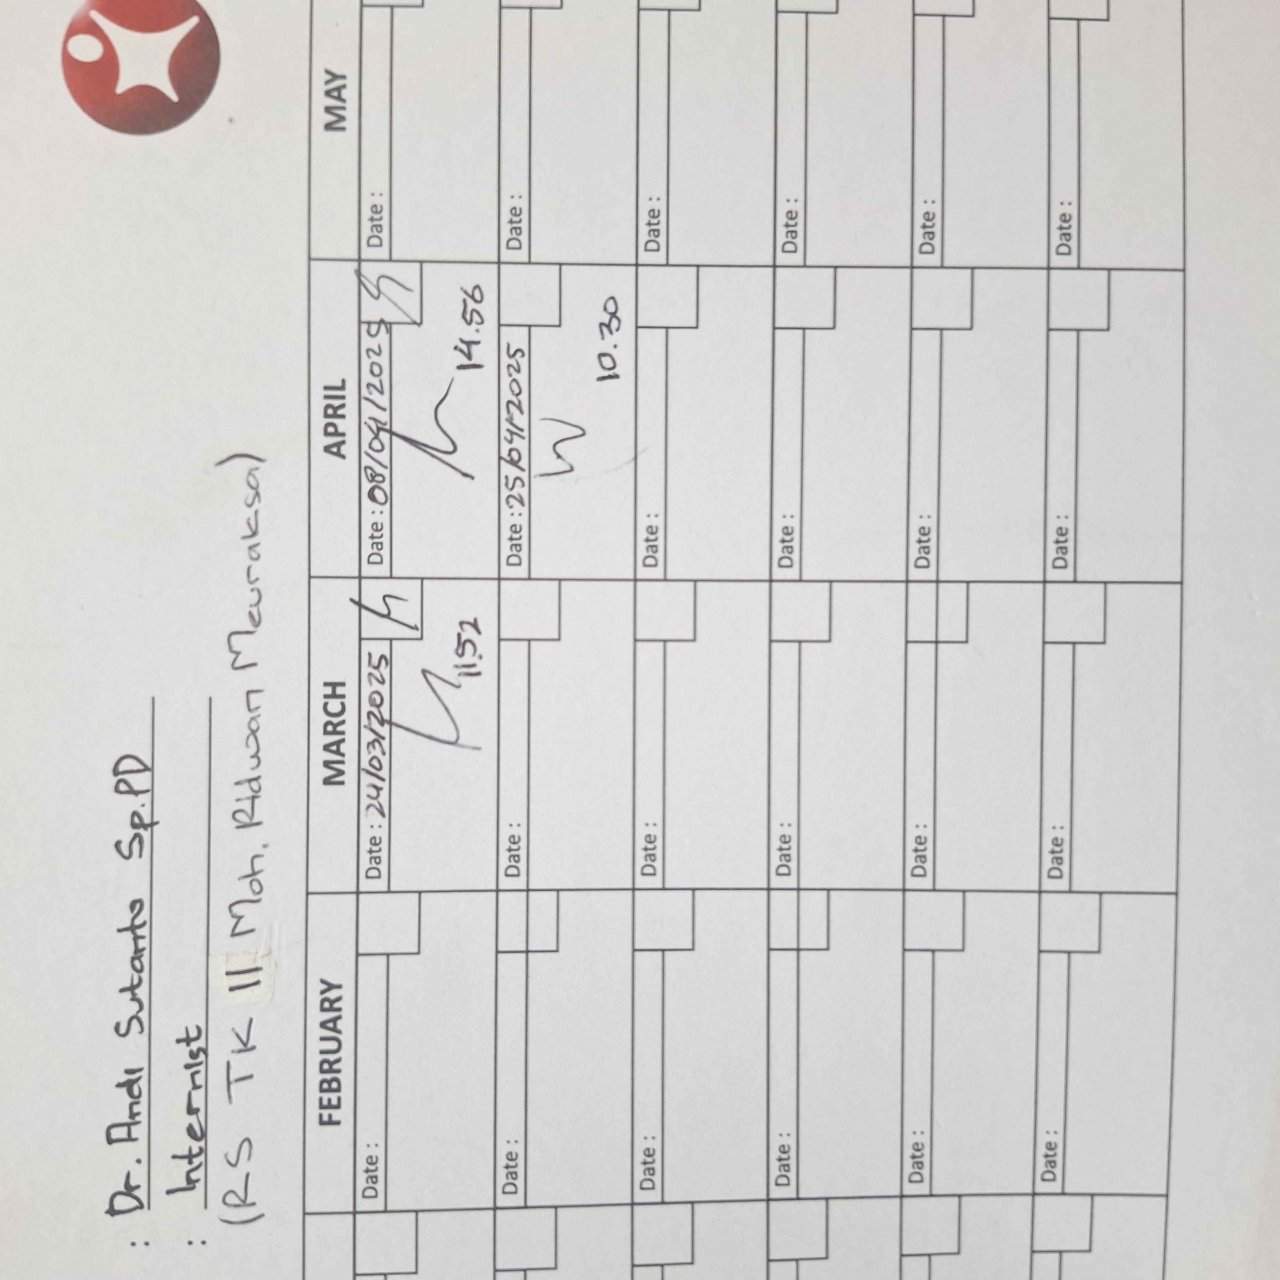 : Dr. Andi Sutanto Sp.PD
: Internist
(RS TK II Moh. Ridwan Meuraksa)
FEBRUARY MARCH APRIL MAY
Date : Date : 24/03/2025 Date : 08/04/2025 Date :
11.52 14.56
Date : Date : Date : 25/04/2025 Date :
10.30
Date : Date : Date : Date :
Date : Date : Date : Date :
Date : Date : Date : Date :
Date : Date : Date : Date :